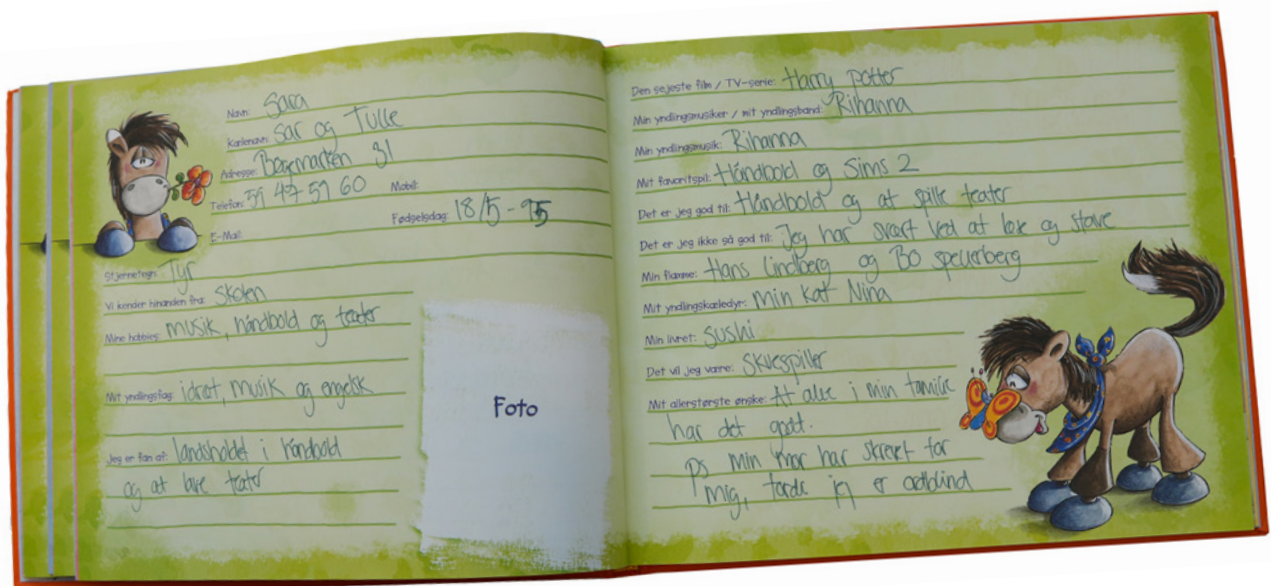 Navn: Sara
Kælenavn: Sar og Tulle
Adresse: Bøgemarken 31
Telefon: 59 47 59 60 Mobil:
E-Mail: Fødselsdag: 18/5-95
Stjernetegn: Tyr
Vi kender hinanden fra: Skolen
Mine hobbies: musik, håndbold og teater
Mit yndlingsfag: idræt, musik og engelsk
Jeg er fan af: landsholdet i håndbold
og at lave teater
Foto
Den sejeste film / TV-serie: Harry Potter
Min yndlingsmusiker / mit yndlingsband: Rihanna
Min yndlingsmusik: Rihanna
Mit favoritspil: Håndbold og Sims 2
Det er jeg god til: Håndbold og at spille teater
Det er jeg ikke så god til: Jeg har svært ved at læse og stave
Min flamme: Hans Lindberg og Bo Spellerberg
Mit yndlingskæledyr: min kat Nina
Min livret: Sushi
Det vil jeg være: Skuespiller
Mit allerstørste ønske: At alle i min familie
har det godt.
Ps min mor har skrevet for
mig, fordi jeg er ordblind